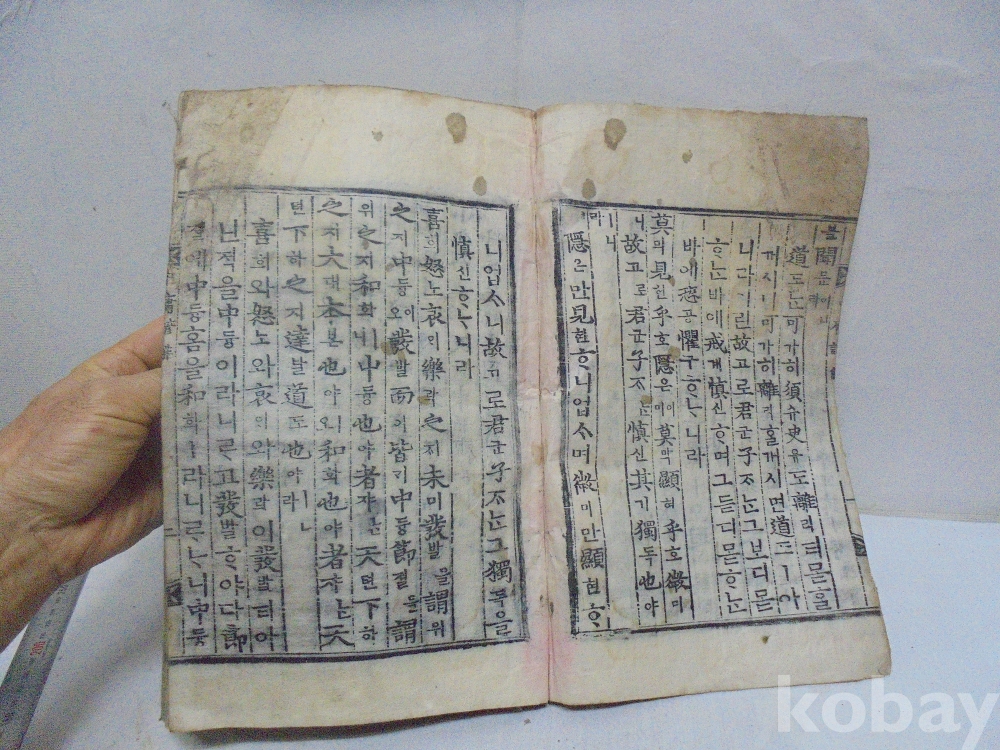 道도ᄂᆞᆫ可가히須슈臾유도離리티몯ᄒᆞᆯ
거시니可가히離리홀거시면道도ㅣ아
니라이런故고로君군子ᄌᆞᄂᆞᆫ그보디몯
ᄒᆞᄂᆞᆫ바애戒계愼신ᄒᆞ며그듣디몯ᄒᆞᄂᆞᆫ
바애恐공懼구ᄒᆞᄂᆞ니라
莫막見현乎호隱은이며莫막顯현乎호微미
니故고로君군子ᄌᆞᄂᆞᆫ愼신其기獨독也야
ㅣ니
隱은만見현ᄒᆞ니업스며微미만顯현ᄒᆞᆫ
니업스니故고로君군子ᄌᆞᄂᆞᆫ그獨독을
愼신ᄒᆞᄂᆞ니라
喜희怒노哀ᄋᆡ樂락之지未미發발을謂위
之지中듕이오發발而이皆ᄀᆡ中듕節졀을謂
위之지和화ㅣ니中듕也야者쟈ᄂᆞᆫ天텬下하
之지大대本본也야ㅣ오和화也야者쟈ᄂᆞᆫ天
텬下하之지達달道도也야ㅣ니라
喜희와怒노와哀ᄋᆡ와樂락이發발티아
닌적을中듕이라니ᄅᆞ고發발ᄒᆞ야다節
졀에中듕홈을和화ㅣ라니ᄅᆞᄂᆞ니中듕
kobay